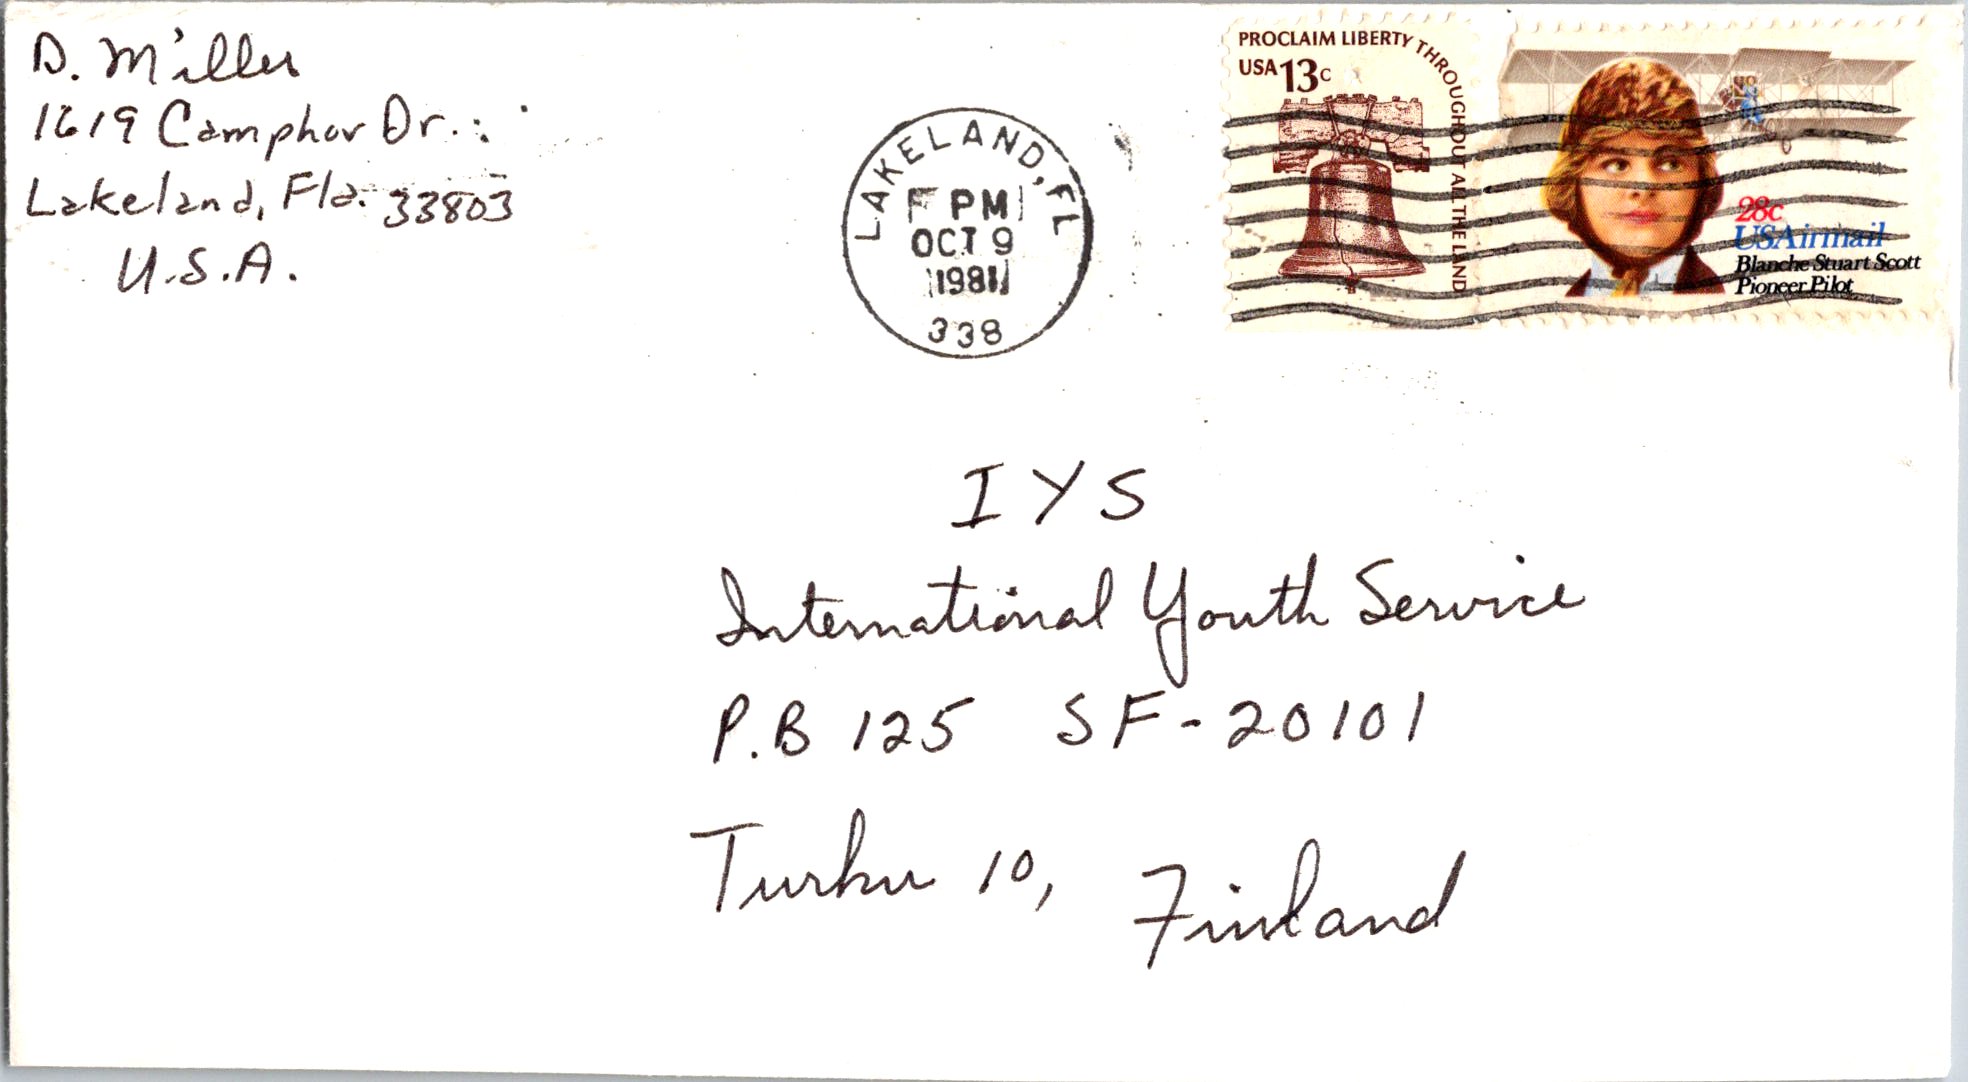 D. Miller
1619 Camphor Dr.
Lakeland, Fla. 33803
U.S.A.
LAKELAND, FL
PM
OCT 9
1981
338
PROCLAIM LIBERTY THROUGHOUT ALL THE LAND
USA 13c
28c
USAirmail
Blanche Stuart Scott
Pioneer Pilot
IYS
International Youth Service
P.B 125 SF-20101
Turku 10, Finland